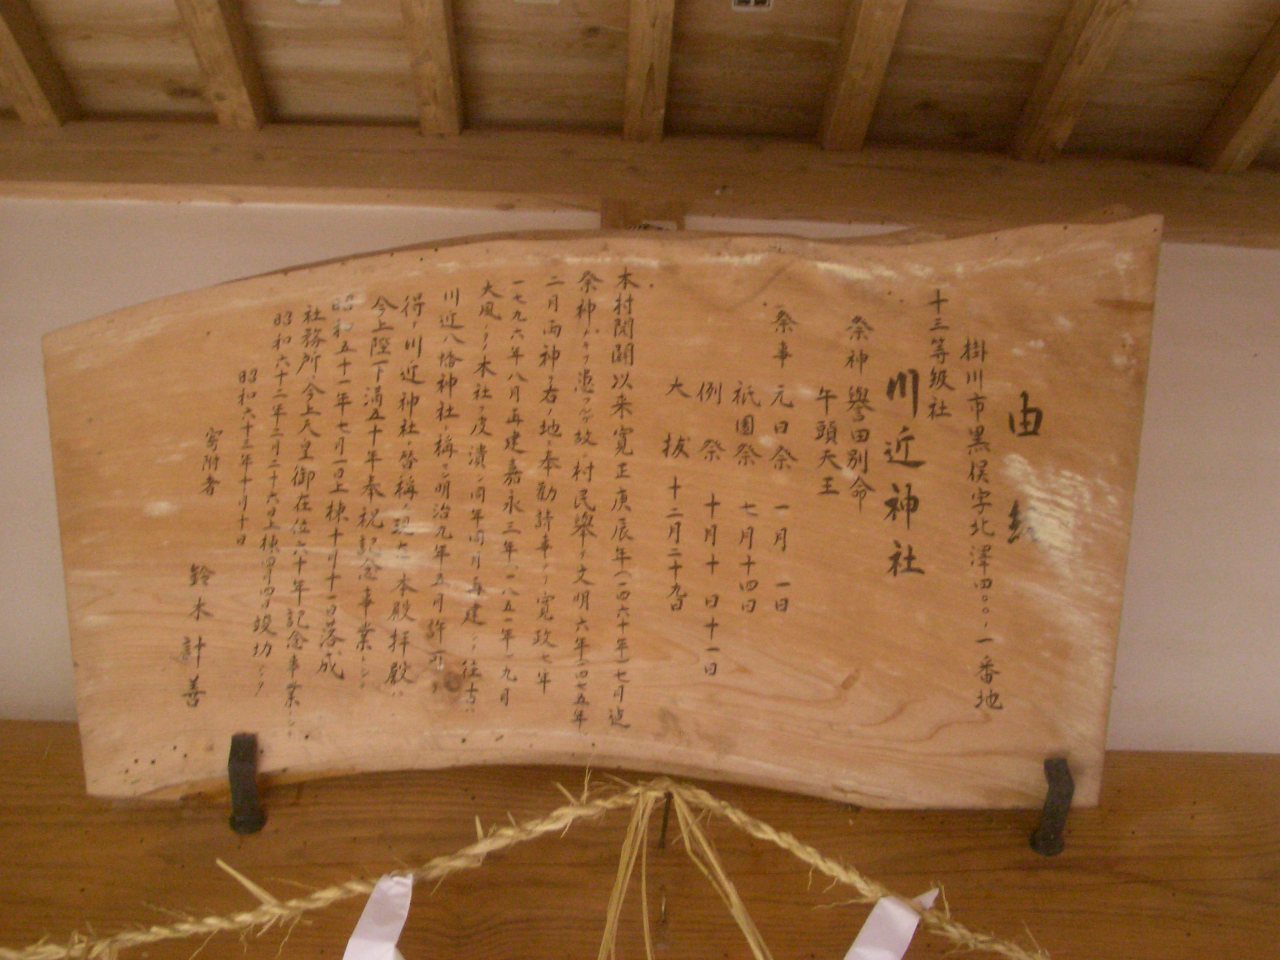 由緒
掛川市黒俣字北澤四〇〇ー一番地
十三等級社
川近神社
祭神 誉田別命
午頭天王
祭事 元日祭 一月一日
祇園祭 七月十四日
例祭 十月十日十一日
大祓 十二月二十九日
本村開闢以来寛正庚辰年(一四六十年)七月迄
祭神ナキヲ憑 故ニ村民挙テ文明六年(一四七五年
二月両神ヲ右ノ地ニ奉勧請 寛政七年
一七九六年八月再建嘉永三年(一八五一年)九月
大風ノタメ本社ヲ皮潰シ同年同月再建シ 往古ハ
川近八幡神社ト称ス明治九年五月許可ヲ
得テ川近神社ト啓称ス現在ノ本殿拝殿ハ
今上陛下満五十年奉祝記念事業トシテ
昭和五十一年七月一日上棟十月十一日落成
社務所ハ今上天皇御在位六十年記念事業トシテ
昭和六十二年二月二十六日上棟四月四日竣功
昭和六十三年十月十日
寄附者
鈴木計善